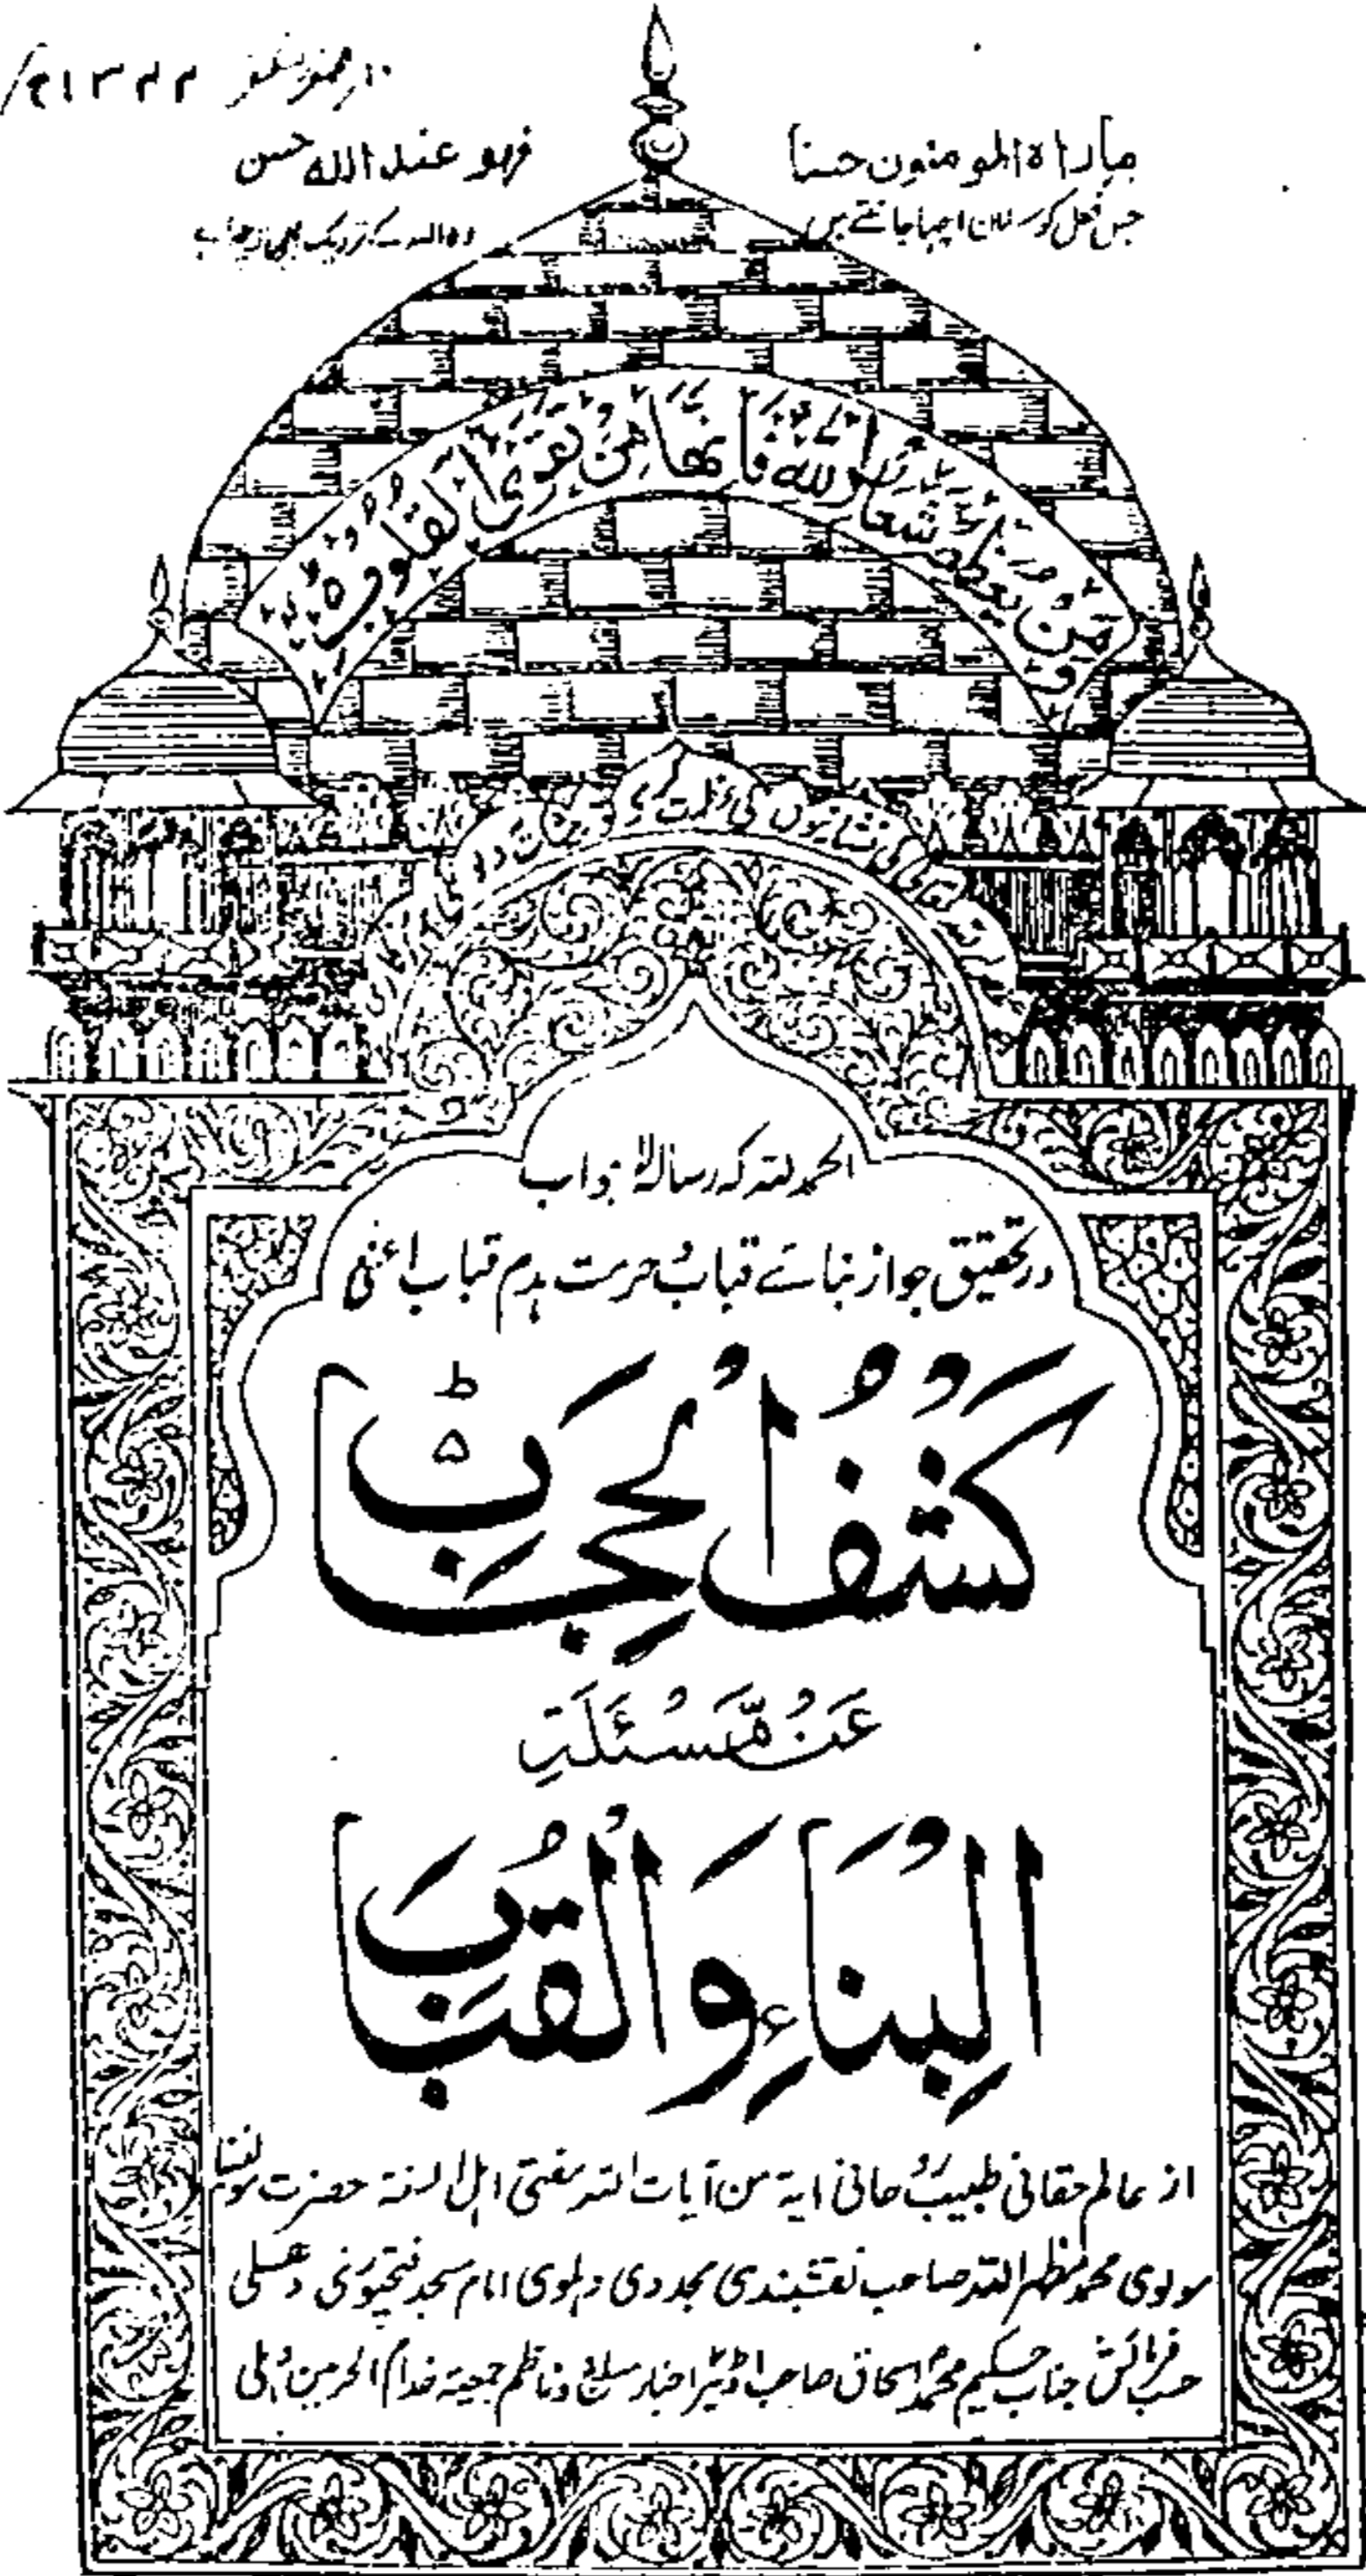 ۱۳۴۴ھ
ماراٰہ المومنون حسنا فہو عند اللہ حسن
جس فعل کو مسلمان اچھا جانتے ہیں وہ اللہ کے نزدیک بھی اچھا ہے
وَمَنْ يُعَظِّمْ شَعَائِرَ اللهِ فَاِنَّهَا مِنْ تَقْوَى الْقُلُوْبِ ہ
نشانیوں کی عظمت کرے
الحمد للہ کہ رسالہ لاجواب
در تحقیق جواز بنائے قباب و حرمت ہدم قباب اعنی
كَشْفُ الْحِجَابْ
عَنْ مَّسْئَلَةِ
الْبِنَاءِ وَالْقُبَابْ
از عالم حقانی طبیب روحانی ایة من آیات اللہ مفتی اہل السنة حضرت مولٰنا
مولوی محمد مظہر اللہ صاحب نقشبندی مجددی دہلوی امام مسجد فتحپوری دہلی
حسب فرمائش جناب حکیم محمد اسحاق صاحب اڈیٹر اخبار مبلغ و ناظم جمعیة خدام الحرمین دہلی